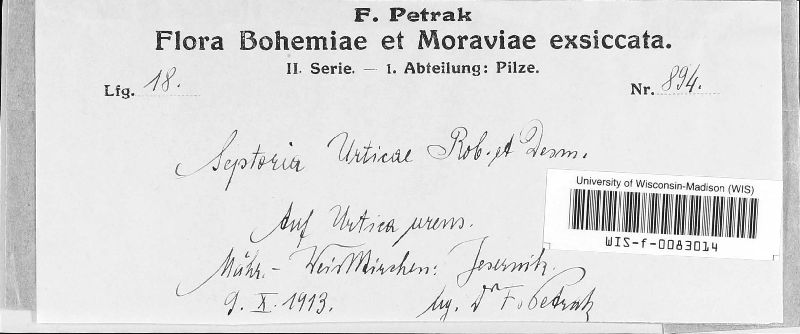 F. Petrak
Flora Bohemiae et Moraviae exsiccata.
II. Serie. — 1. Abteilung: Pilze.
Lfg. 18. Nr. 894.
Septoria Urticae Rob. et Desm.
University of Wisconsin-Madison (WIS)
WIS-f-0083014
Auf Urtica urens.
Mähr.- Weisskirchen: Jesernik.
9. X. 1913. lg. Dr F. Petrak